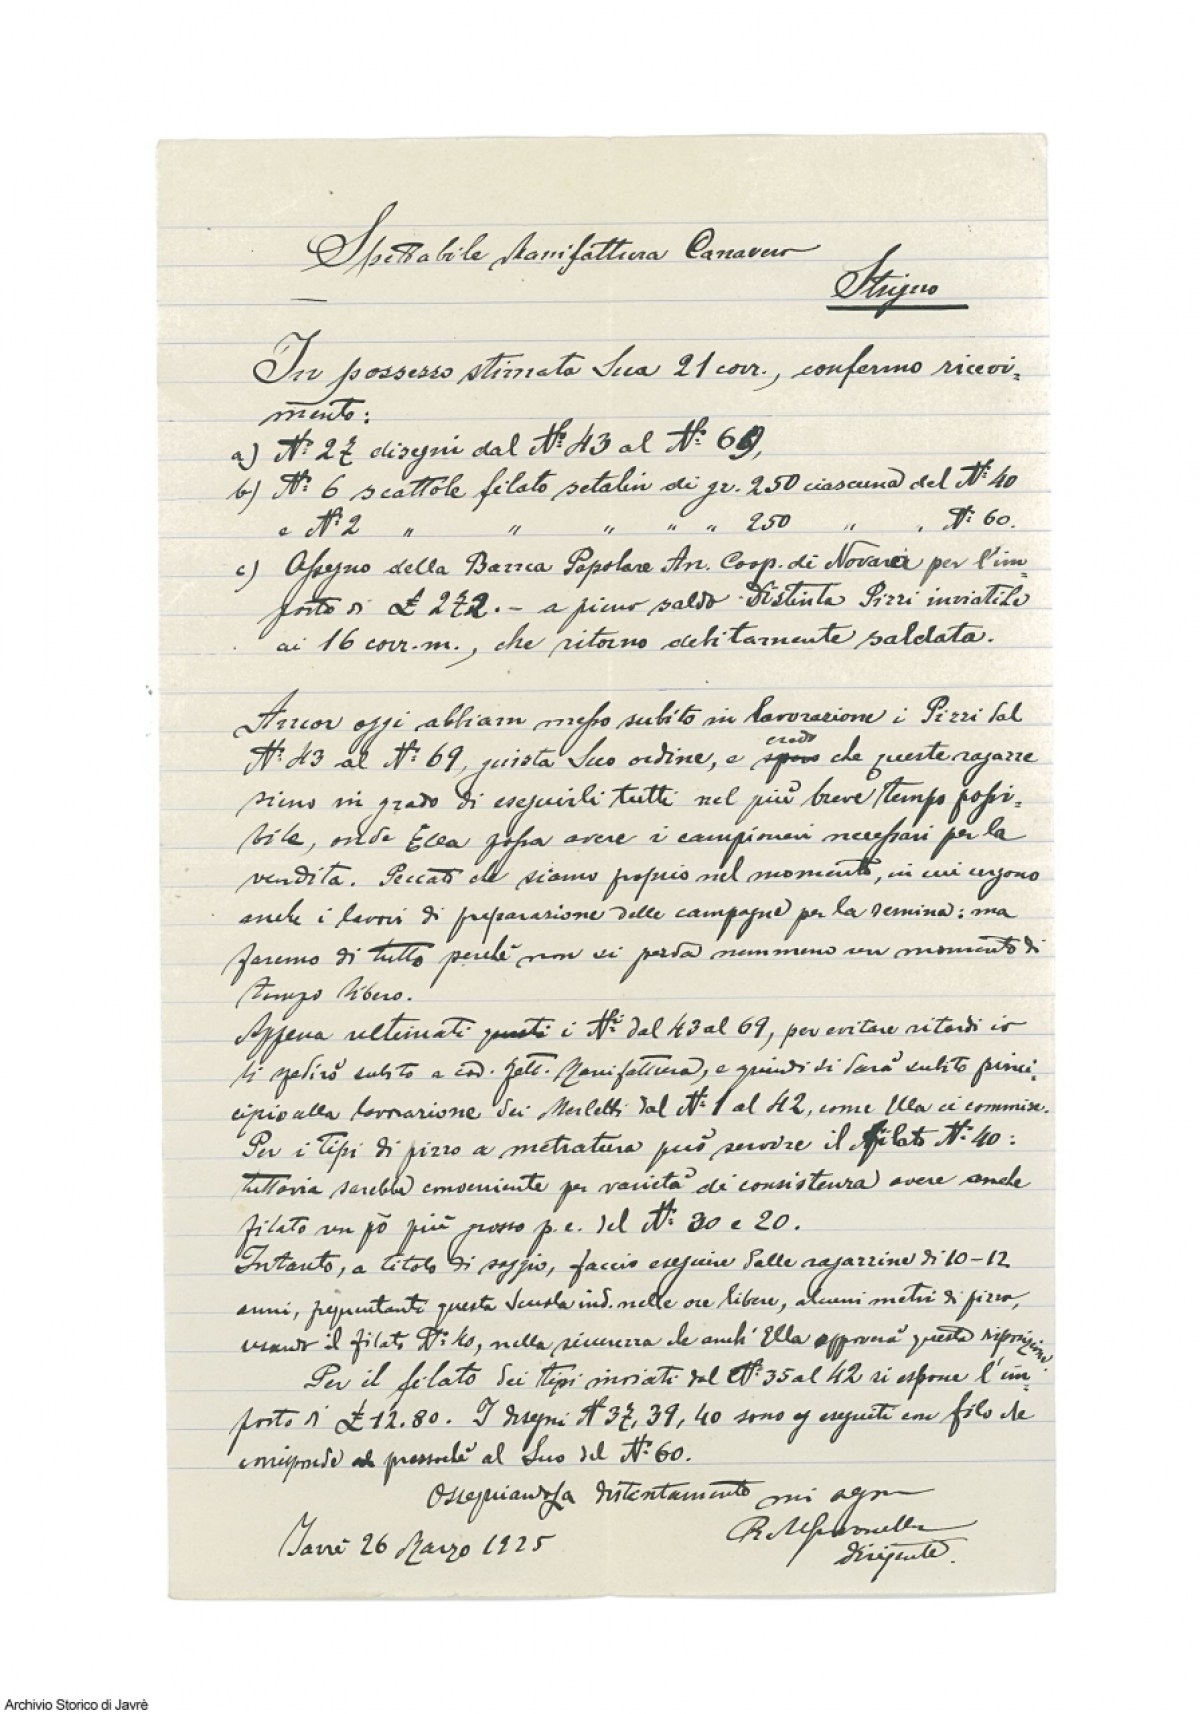 Spettabile Manifattura Canavero
Strigno
In possesso stimata Sua 21 corr., confermo ricevi=
mento:
a) Nº 27 disegni dal Nº 43 al Nº 69,
b) Nº 6 scattole filato setalin di gr. 250 ciascuna del Nº 40
e Nº 2 " " " " " 250 " " Nº 60.
c) Assegno della Banca Popolare An. Coop. di Novara per l'im=
porto di £ 272.- a pieno saldo Distinta Pizzi inviatile
ai 16 corr. m., che ritorno debitamente saldata.
Ancor oggi abbiam messo subito in lavorazione i Pizzi dal
Nº 43 al Nº 69, giusta Suo ordine, e credo che queste ragazze
sieno in grado di eseguirli tutti nel più breve tempo possi=
bile, onde Ella possa avere i campionari necessari per la
vendita. Peccato che siamo proprio nel momento, in cui urgono
anche i lavori di preparazione delle campagne per la semina: ma
faremo di tutto perchè non si perda nemmeno un momento di
tempo libero.
Appena ultimati questi i Nri dal 43 al 69, per evitare ritardi io
li spedirò subito a cod. Spett. Manifattura, e quindi si darà subito princi=
cipio alla lavorazione dei Merletti dal Nº 1 al 42, come Ella ci commise.
Per i tipi di pizzo a metratura può servire il filato Nº 40:
tuttavia sarebbe conveniente per varietà di consistenza avere anche
filato un pò più grosso p. e. del Nº 30 e 20.
Intanto, a titolo di saggio, faccio eseguire dalle ragazzine di 10-12
anni, frequentanti questa Scuola ind. nelle ore libere, alcuni metri di pizzo,
usando il filato Nº 40, nella sicurezza che anch' Ella approverà questa disposizione.
Per il filato dei tipi inviati dal Nº 35 al 42 si espone l'im=
porto di £ 12.80. I disegni Nº 37, 39, 40 sono eseguiti con filo che
corrisponde pressochè al Suo del Nº 60.
Ossequiandola distintamente mi segno
Javrè 26 Marzo 1925
dirigente.
Archivio Storico di Javrè